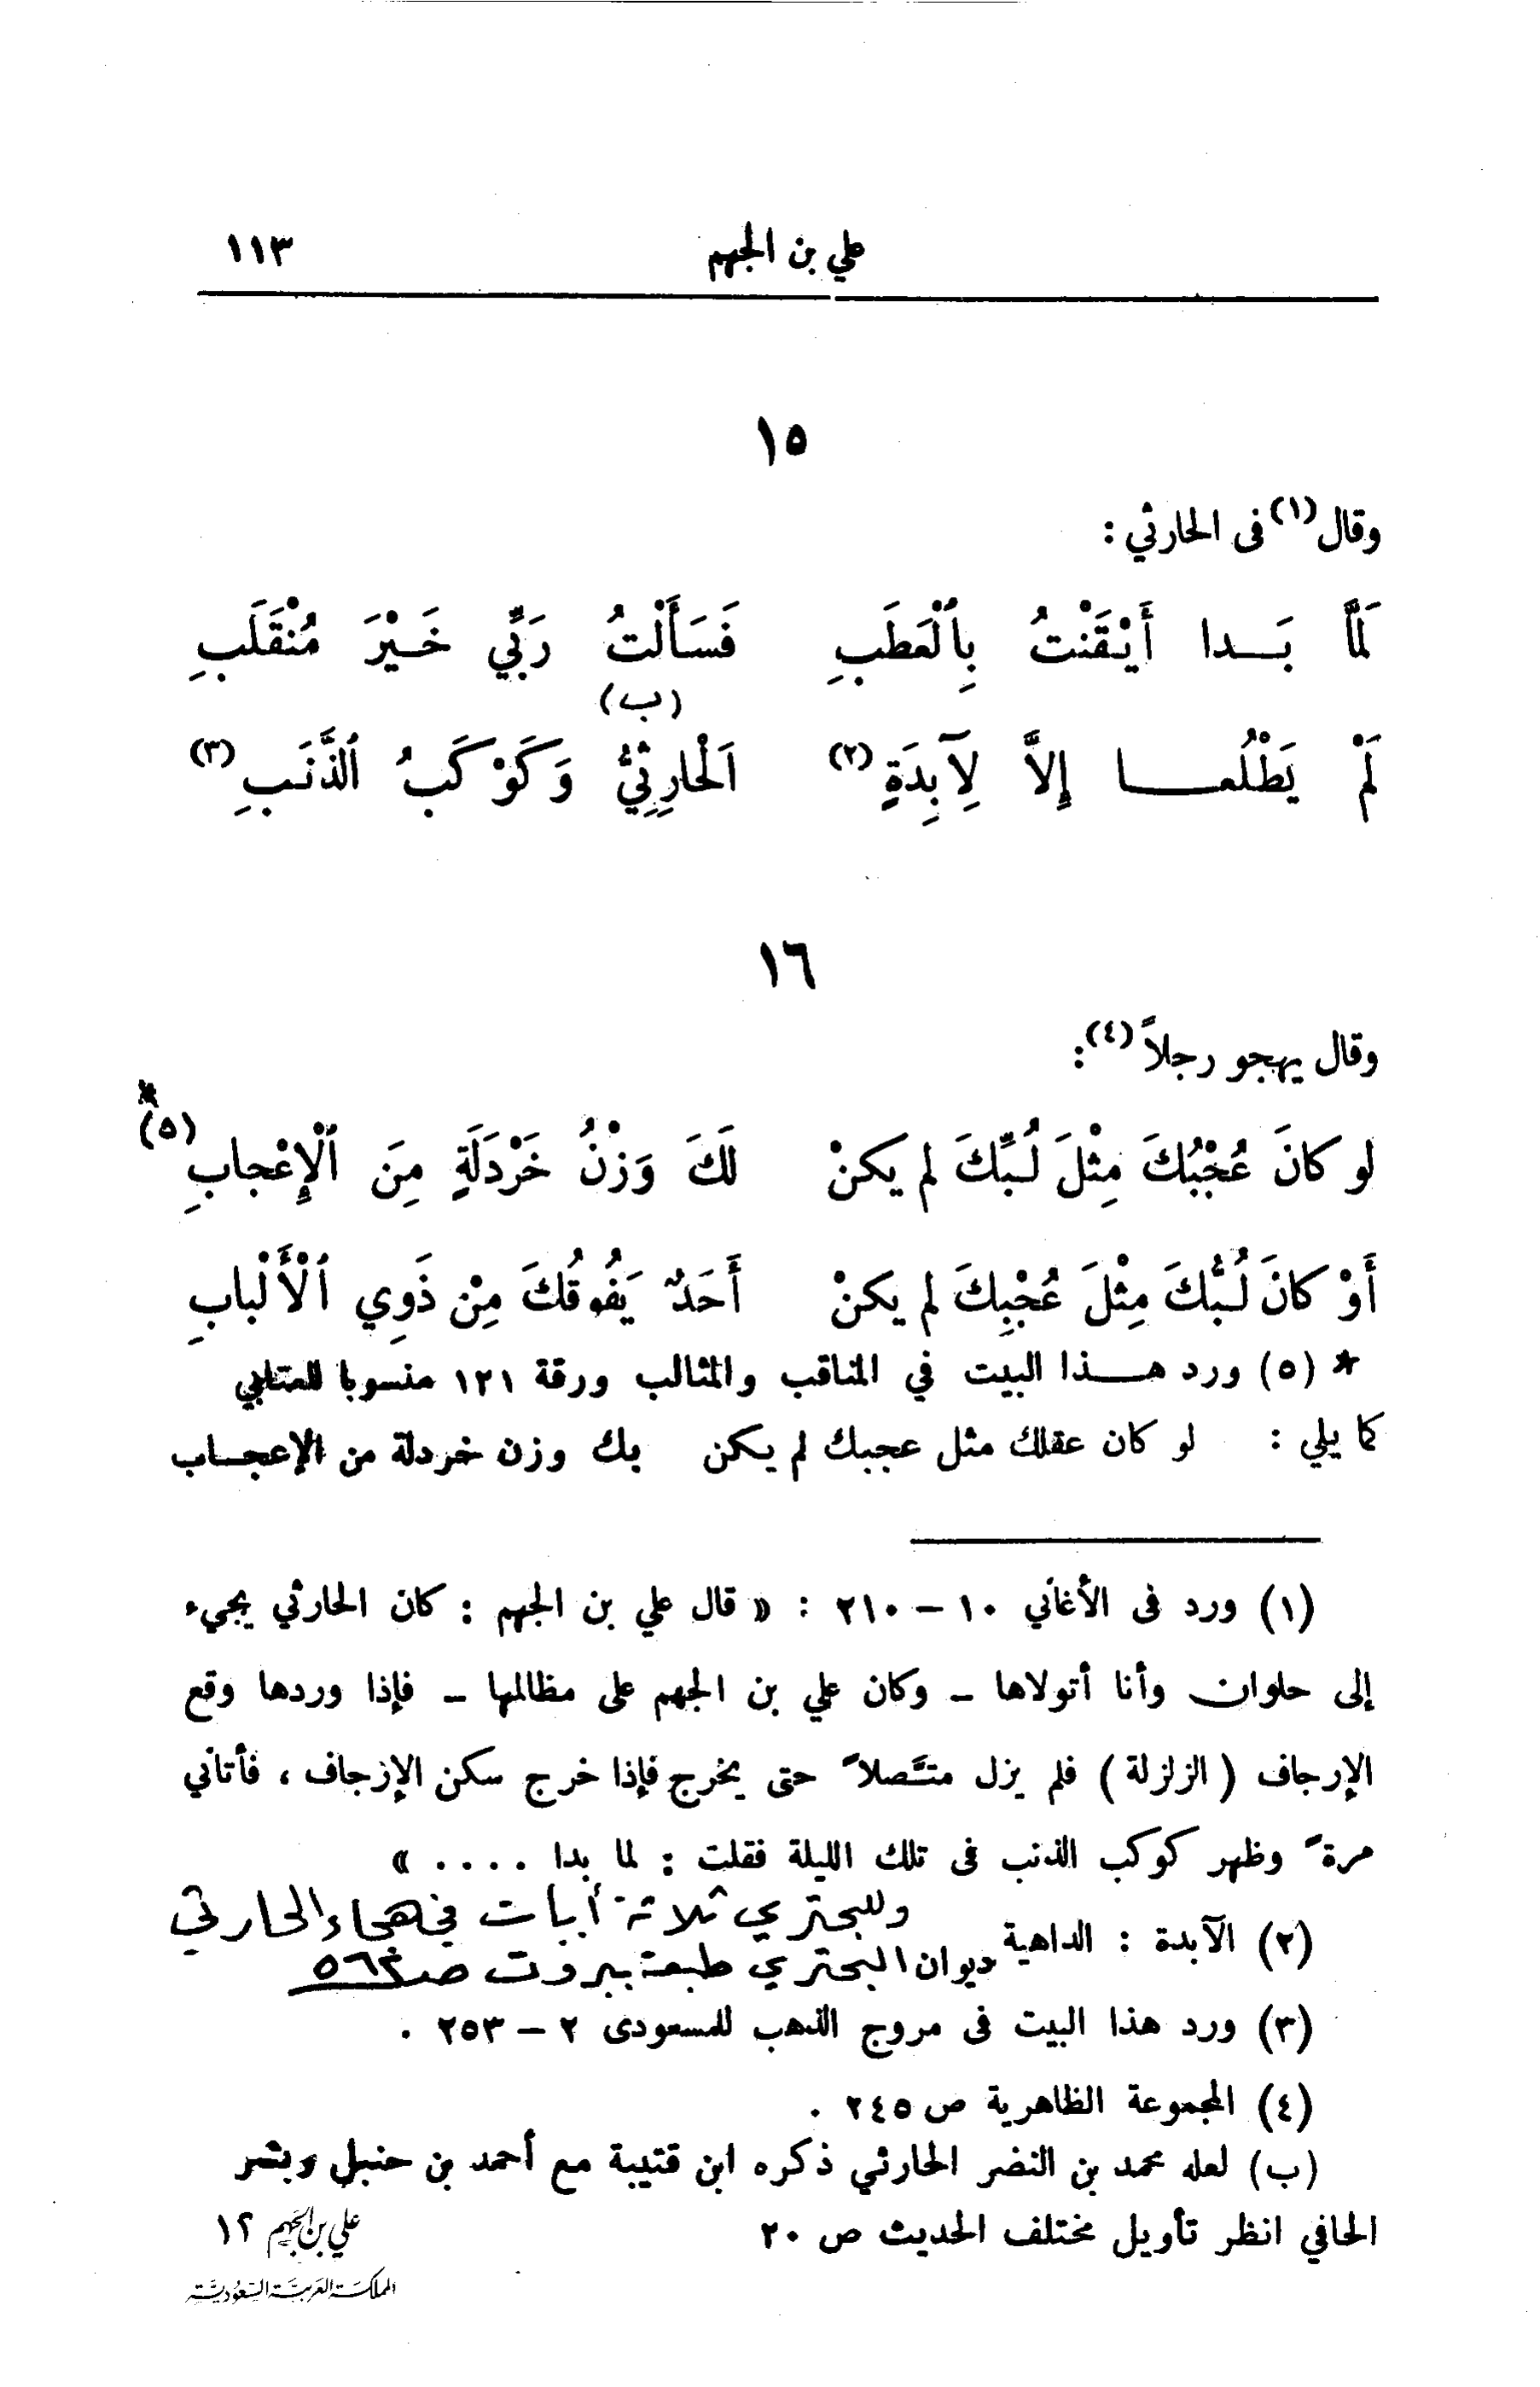 علي بن الجهم ١١٣
١٥
وقال (١) فى الحارثي :
لَمَّا بَــدا أَيْقَنْتُ بِٱلْعَطَبِ فَسَأَلْتُ رَبِّي خَيْرَ مُنْقَلَبِ
(ب)
لَمْ يَطْلُعــا إِلاَّ لِآبِدَةٍ (٢) اَلْحارِثِيُّ وَكَوْكَبُ ٱلذَّنَبِ (٣)
١٦
وقال يهجو رجلاً (٤) :
*
لو كانَ عُجْبُكَ مِثْلَ لُبِّكَ لم يكنْ لَكَ وَزْنُ خَرْدَلَةٍ مِنَ ٱلْإِعْجابِ (٥)
أَوْ كانَ لُبُّكَ مِثْلَ عُجْبِكَ لم يكنْ أَحَدٌ يَفُوقُكَ مِنْ ذَوِي ٱلْأَلْبابِ
* (٥) ورد هــذا البيت في المناقب والمثالب ورقة ١٢١ منسوبا للعتابي
كما يلي : لو كان عقلك مثل عجبك لم يكن بك وزن خردلة من الإعجــاب
(١) ورد فى الأغاني ١٠ – ٢١٠ : « قال علي بن الجهم : كان الحارثي يجيء
إلى حلوان وأنا أتولاها – وكان علي بن الجهم على مظالمها – فإذا وردها وقع
الإرجاف ( الزلزلة ) فلم يزل متَّصلاً حتى يخرج فإذا خرج سكن الإرجاف ، فأتاني
مرةً وظهر كوكب الذنب فى تلك الليلة فقلت : لما بدا .... »
وللبحتري ثلاثة أبيات في هجاء الحارثي
(٢) الآبدة : الداهية
ديوان البحتري طبعة بيروت ص ٥٦٤
(٣) ورد هذا البيت فى مروج الذهب للمسعودى ٢ – ٢٥٣ .
(٤) المجموعة الظاهرية ص ٢٤٥ .
(ب) لعله محمد بن النضر الحارثي ذكره ابن قتيبة مع أحمد بن حنبل وبشر
الحافي انظر تأويل مختلف الحديث ص ٢٠
علي بن الجهم ١٢
المملكة العربية السعودية